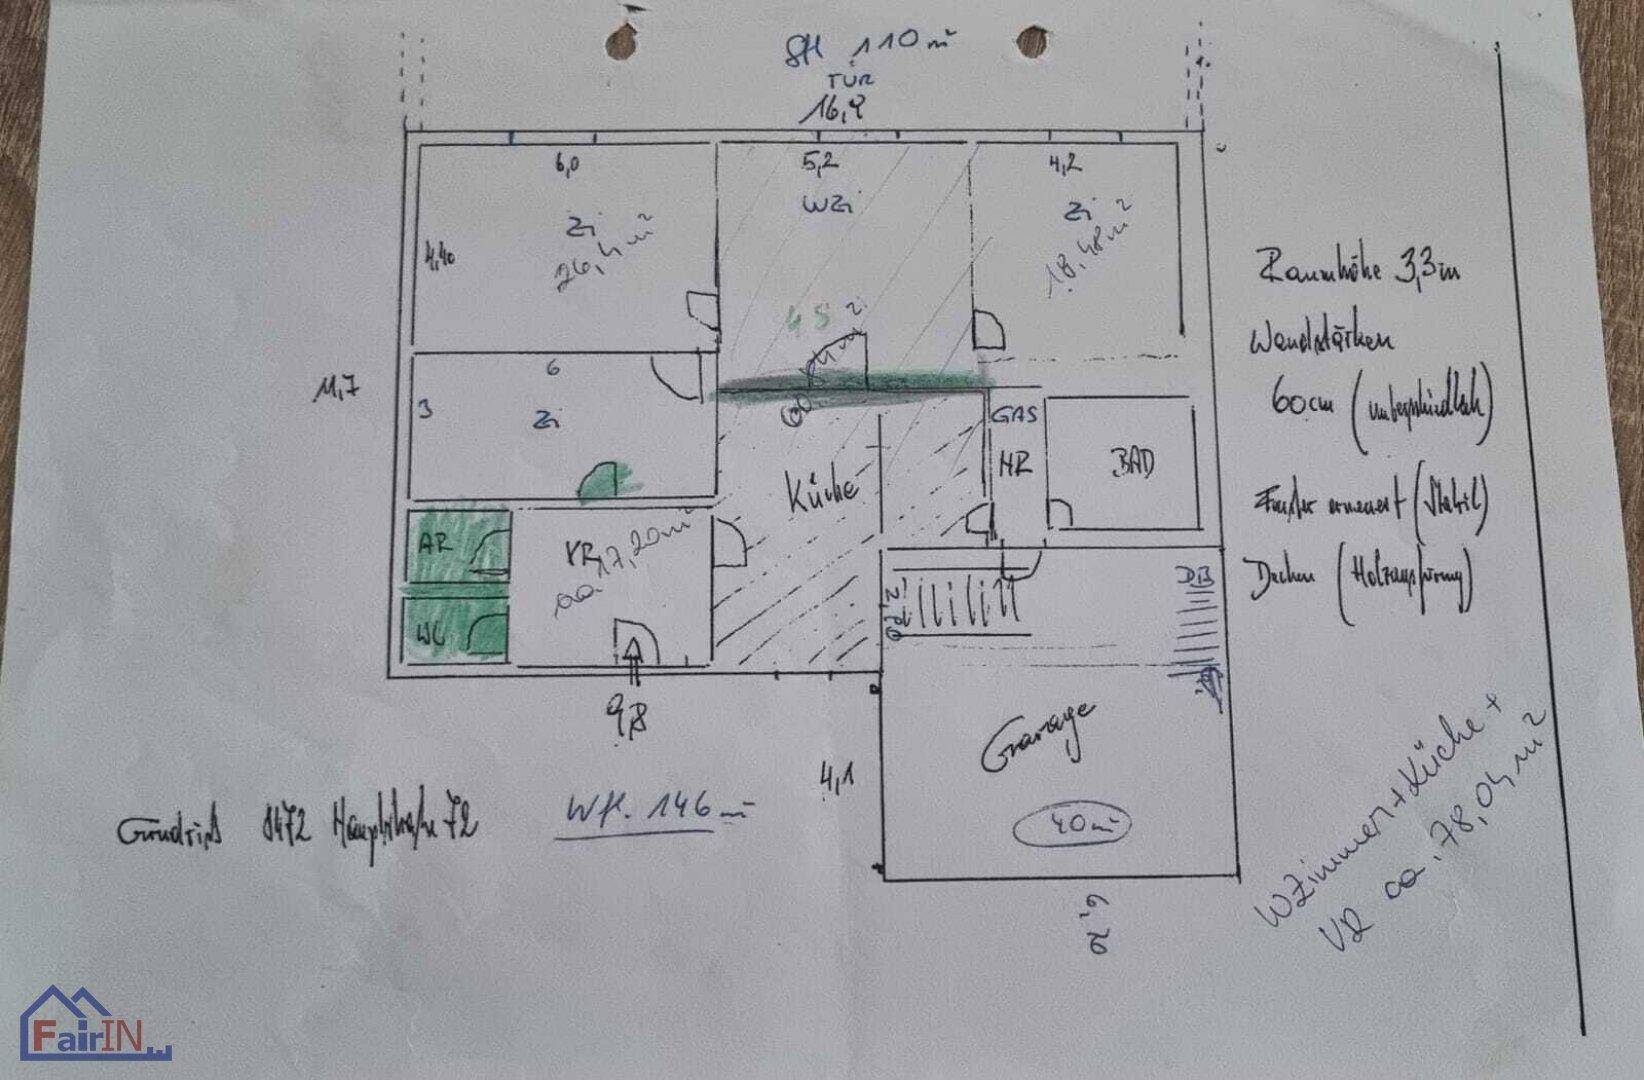 110 m²
TÜR
16,9
6,0
5,2
4,2
Zi
26,4 m²
WZi
Zi
18,48 m²
4,40
Raumhöhe 3,3m
Wandstärken
60cm (unterschiedlich)
Fenster erneuert
Decken
11,7
6
3
Zi
4 5
GAS
HR
BAD
Küche
AR
VR
ca 17,20 m²
WC
DB
9,8
4,1
Garage
40 m²
6,2
Grundriß 8472 Hauptstraße 72
Wfl. 146 m²
WZimmer+Küche +
VR ca. 78,04 m²
FairIN